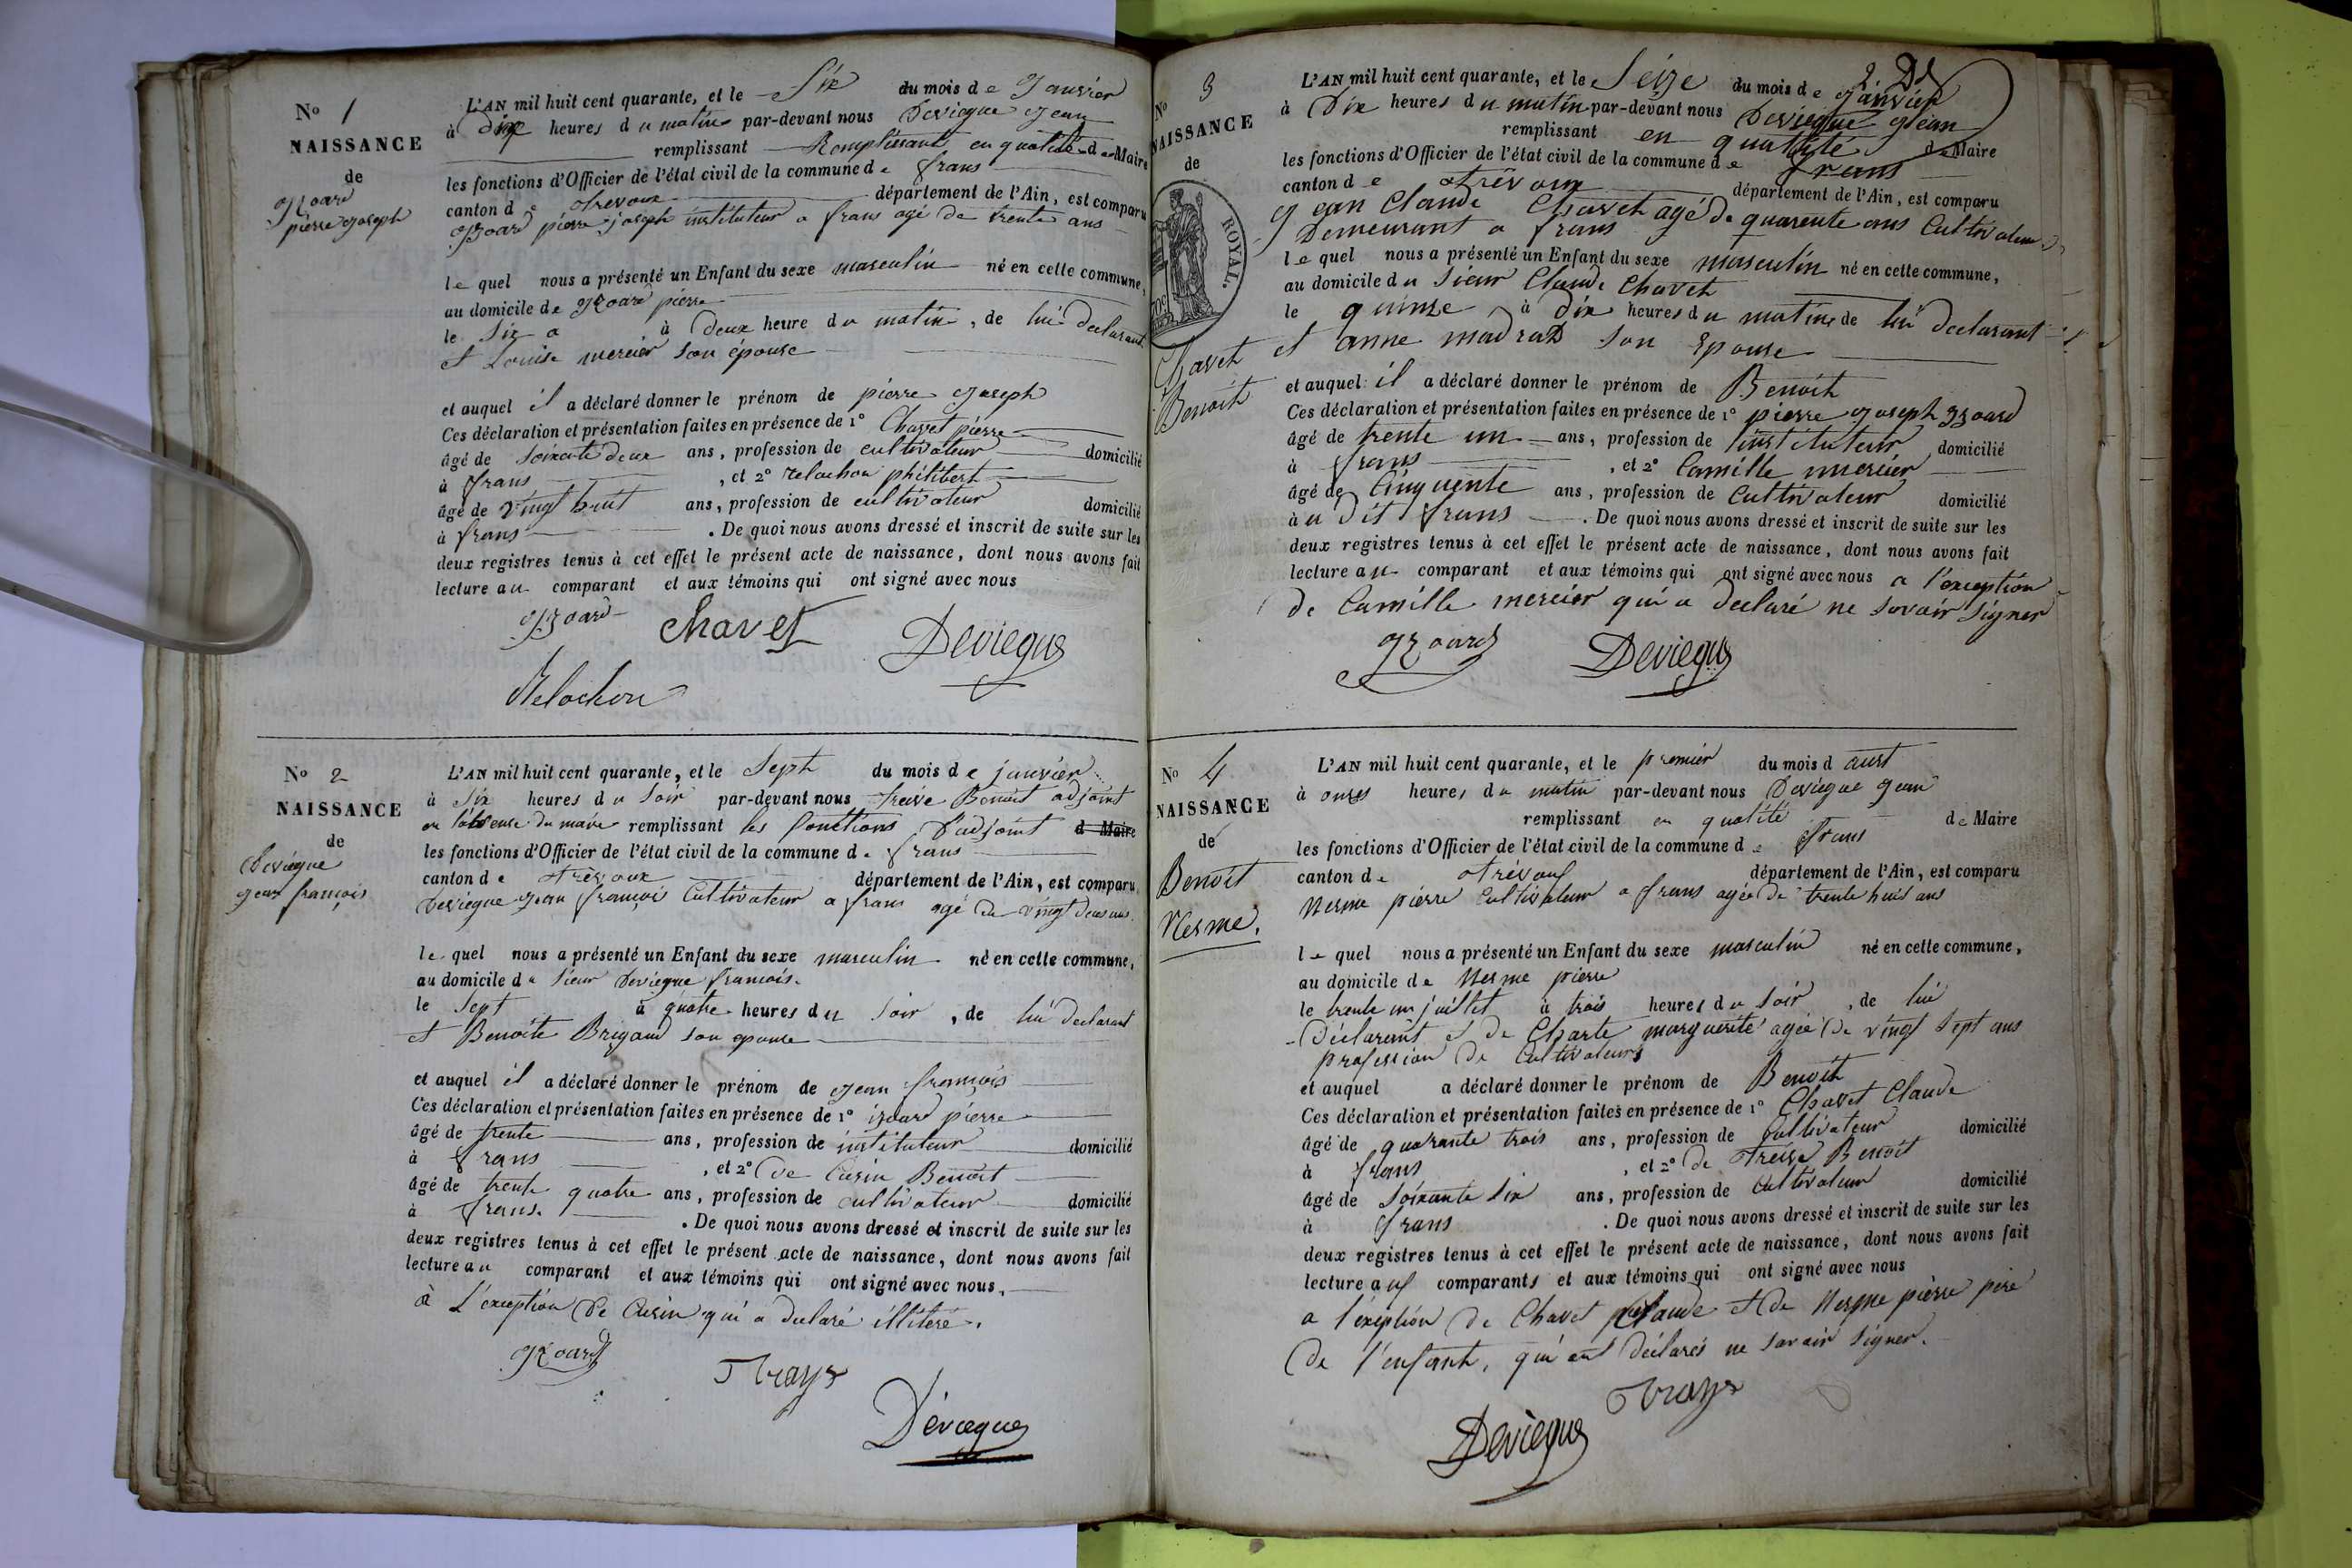 N° 1
NAISSANCE
de
Izoard
pierre joseph
L'AN mil huit cent quarante, et le Six du mois de Janvier
à dix heures du matin par-devant nous Deviegue Jean
remplissant Remplissant en qualité de Maire
les fonctions d'Officier de l'état civil de la commune de frans
canton de Trevoux département de l'Ain, est comparu
Izoard pierre joseph instituteur a frans agé de trente ans
le quel nous a présenté un Enfant du sexe masculin né en cette commune,
au domicile de Izoard pierre
le Six a à Deux heure du matin, de lui declarant
et Louise mercier son épouse
et auquel il a déclaré donner le prénom de pierre joseph
Ces déclaration et présentation faites en présence de 1° Chavet pierre
âgé de soixante deux ans, profession de cultivateur domicilié
à frans, et 2° Relachon philibert
âgé de vingt huit ans, profession de cultivateur domicilié
à frans. De quoi nous avons dressé et inscrit de suite sur les
deux registres tenus à cet effet le présent acte de naissance, dont nous avons fait
lecture au comparant et aux témoins qui ont signé avec nous
Izoard Chavet Deviegue
Relachon
N° 2
NAISSANCE
de
Deviegue
Jean françois
L'AN mil huit cent quarante, et le Sept du mois de janvier
à Six heures du Soir par-devant nous Treive Benoit adjoint
en l'absence du maire remplissant les fonctions d'adjoint d Maire
les fonctions d'Officier de l'état civil de la commune de frans
canton de Trévoux département de l'Ain, est comparu
Deviegue Jean françois Cultivateur a frans agé de vingt deux ans
le quel nous a présenté un Enfant du sexe masculin né en cette commune,
au domicile du Sieur Deviegue francois.
le Sept à quatre heures du soir, de lui declarant
et Benoite Brigand son epouse
et auquel il a déclaré donner le prénom de Jean françois
Ces déclaration et présentation faites en présence de 1° izoard pierre
âgé de trente ans, profession de instituteur domicilié
à frans, et 2° de Curin Benoit
âgé de trente quatre ans, profession de cultivateur domicilié
à frans. De quoi nous avons dressé et inscrit de suite sur les
deux registres tenus à cet effet le présent acte de naissance, dont nous avons fait
lecture au comparant et aux témoins qui ont signé avec nous.
à L'exception De Curin qui a declaré illiteré.
Izoard
Deviegue
N° 3
NAISSANCE
de
ROYAL.
Chavet
Benoit
L'AN mil huit cent quarante, et le Seize du mois de Janvier
à Dix heures du matin par-devant nous Deviegue Jean
remplissant en qualité de Maire
les fonctions d'Officier de l'état civil de la commune de frans
canton de Trévoux département de l'Ain, est comparu
Jean Claude Chavet agé de quarente ans Cultivateur
Demeurant a frans
le quel nous a présenté un Enfant du sexe masculin né en cette commune,
au domicile du Sieur Claude Chavet
le quinze à dix heures du matin de lui declarant
et anne madras son Epouse
et auquel il a déclaré donner le prénom de Benoit
Ces déclaration et présentation faites en présence de 1° pierre joseph Izoard
âgé de trente un ans, profession de instituteur domicilié
à frans, et 2° Camille mercier
âgé de Cinquente ans, profession de Cultivateur domicilié
à u dit frans. De quoi nous avons dressé et inscrit de suite sur les
deux registres tenus à cet effet le présent acte de naissance, dont nous avons fait
lecture au comparant et aux témoins qui ont signé avec nous a l'exception
de Camille mercier qui a declaré ne savoir signer
Izoard Deviegue
N° 4
NAISSANCE
de
Benoit
Nesme.
L'AN mil huit cent quarante, et le premier du mois d aust
à onze heures du matin par-devant nous Deviegue Jean
remplissant en qualité de Maire
les fonctions d'Officier de l'état civil de la commune de frans
canton de Trévoux département de l'Ain, est comparu
Nesme pierre Cultivateur a frans agée de trente huit ans
le quel nous a présenté un Enfant du sexe masculin né en cette commune,
au domicile de Nesme pierre
le trente un juillet à trois heures du soir, de lui
Déclarant et de Charle marguerite agée de vingt Sept ans
profession de Cultivateurs
et auquel a déclaré donner le prénom de Benoit
Ces déclaration et présentation faites en présence de 1° Chavet Claude
âgé de quarante trois ans, profession de Cultivateur domicilié
à frans, et 2° de Treive Benoit
âgé de Soixante Six ans, profession de Cultivateur domicilié
à frans. De quoi nous avons dressé et inscrit de suite sur les
deux registres tenus à cet effet le présent acte de naissance, dont nous avons fait
lecture aux comparants et aux témoins qui ont signé avec nous
a l'éxéption de Chavet Claude et de Nesme pierre père
de l'enfant, qui ont déclarés ne savoir signer.
Deviegue